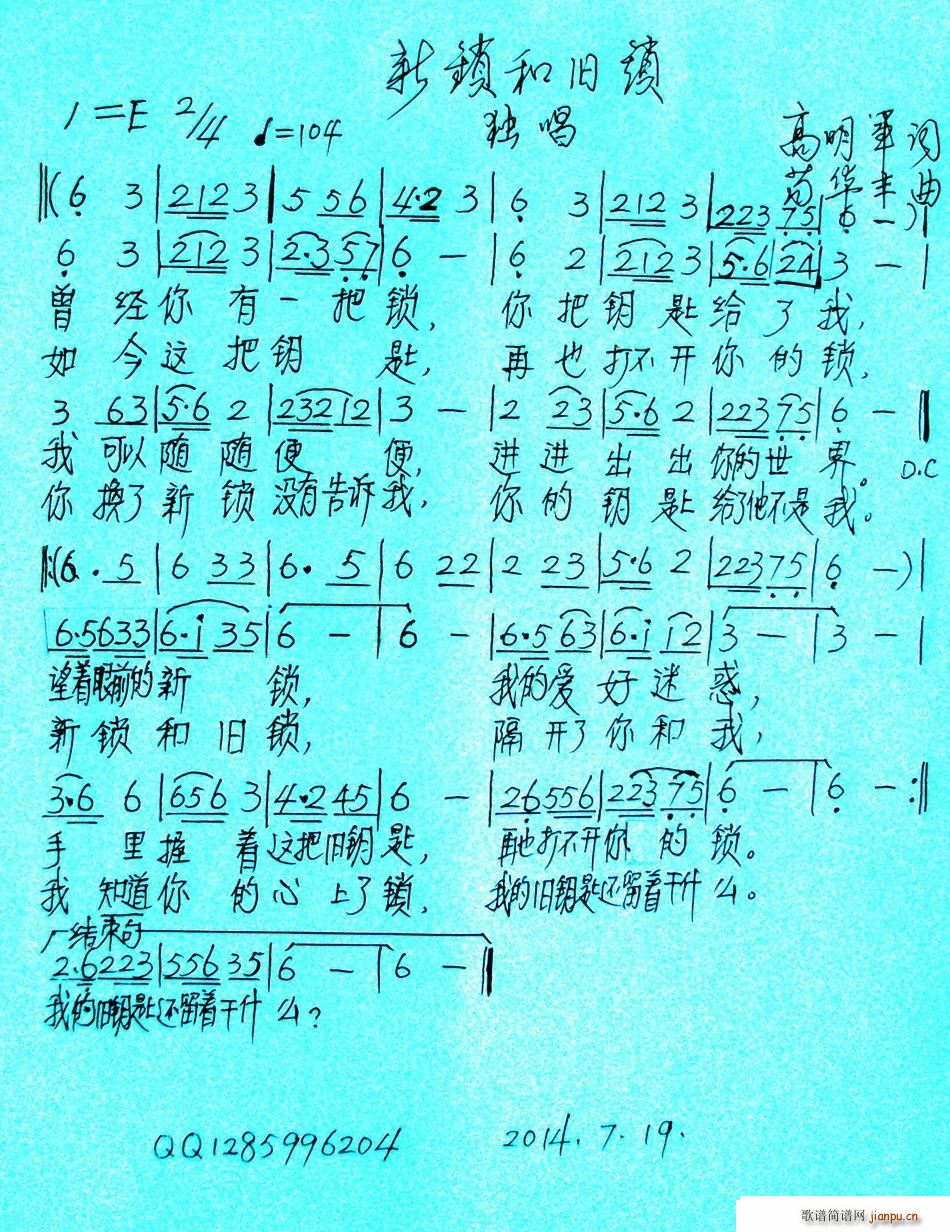 新鎖和旧鎖
1=E 2/4 ♩=104 独唱 高明軍词
苟华丰曲
‖(6 3|212 3|5 56|4·2 3|6 3|212 3|223 75|6 -)|
6 3|212 3|2·3 57|6 -|6 2|212 3|5·6 24|3 -|
曾经你有一把锁, 你把钥匙给了我,
如今这把钥匙, 再也打不开你的锁,
3 63|5·6 2|23212|3 -|2 23|5·6 2|223 75|6 -‖
我可以随随便便, 进进出出你的世界。 D.C
你换了新锁没有告诉我, 你的钥匙给了他不是我。
‖:(6·5|6 33|6·5|6 22|2 23|5·6 2|22375|6 -)|
6·5633|6·i 35|6 -|6 -|6·5 63|6·i i2|3 -|3 -|
望着眼前的新锁, 我的爱好迷惑,
新锁和旧锁, 隔开了你和我,
3·6 6|656 3|4·245|6 -|26556|22375|6 -|6 -:‖
手里握着这把旧钥匙, 再也打不开你的锁。
我知道你的心上了锁, 我的旧钥匙还留着干什么。
结束句
2·6223|556 35|6 -|6 -‖
我的旧钥匙还留着干什么?
QQ1285996204 2014.7.19.
歌谱简谱网
jianpu.cn